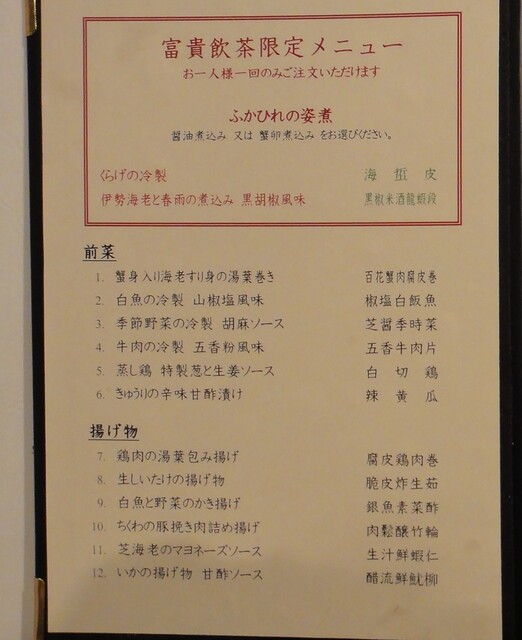 富貴飲茶限定メニュー
お一人様一回のみご注文いただけます
ふかひれの姿煮
醤油煮込み 又は 蟹卵煮込み をお選びください。
くらげの冷製 海蜇皮
伊勢海老と春雨の煮込み 黒胡椒風味 黒椒米酒龍蝦段
前菜
1. 蟹身入り海老すり身の湯葉巻き 百花蟹肉腐皮巻
2. 白魚の冷製 山椒塩風味 椒塩白飯魚
3. 季節野菜の冷製 胡麻ソース 芝醤季時菜
4. 牛肉の冷製 五香粉風味 五香牛肉片
5. 蒸し鶏 特製葱と生姜ソース 白切鶏
6. きゅうりの辛味甘酢漬け 辣黄瓜
揚げ物
7. 鶏肉の湯葉包み揚げ 腐皮鶏肉巻
8. 生しいたけの揚げ物 脆皮炸生茹
9. 白魚と野菜のかき揚げ 銀魚素菜酢
10. ちくわの豚挽き肉詰め揚げ 肉鬆醸竹輪
11. 芝海老のマヨネーズソース 生汁鮮蝦仁
12. いかの揚げ物 甘酢ソース 醋流鮮魷柳